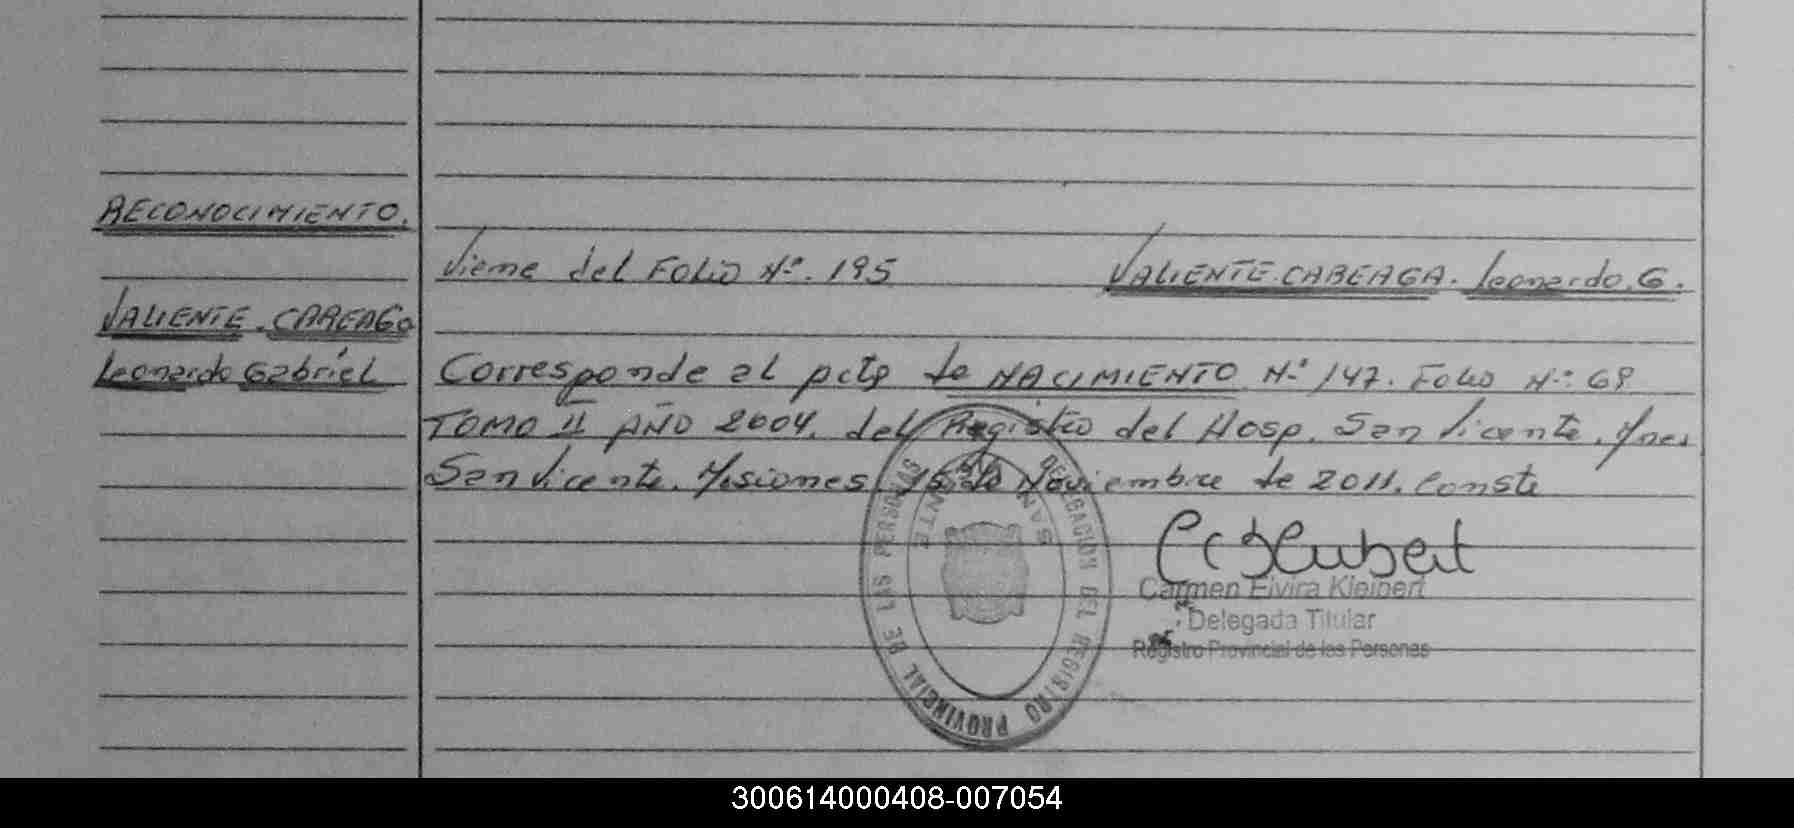 RECONOCIMIENTO.
Viene del FOLIO Nº. 195 VALIENTE. CABEAGA. Leonardo. G.
VALIENTE. CAREAGA
Leonardo Gabriel
Corresponde al acta de NACIMIENTO Nº 147. FOLIO Nº: 69
TOMO II AÑO 2004. del Registro del Hosp. San Vicente. Mnes
San Vicente. Misiones 15 de Noviembre de 2011. Conste
DELEGACION DEL REGISTRO PROVINCIAL DE LAS PERSONAS
SAN VICENTE
Carmen Elvira Kleibert
Delegada Titular
Registro Provincial de las Personas
300614000408-007054